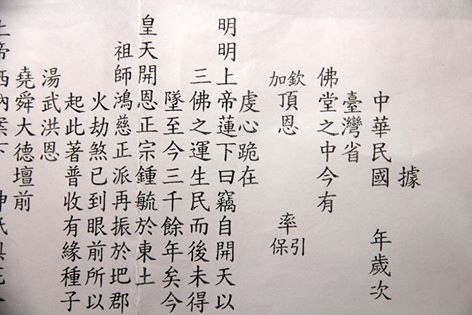 據
中華民國 年歲次
臺灣省
佛堂之中今有
欽加頂恩 率引保
虔心跪在
明明上帝蓮下曰竊自開天以
三佛之運生民而後未得
墜至今三千餘年矣今
皇天開恩正宗鍾毓於東土
祖師鴻慈正派再振於圯郡
火劫煞已到眼前所以
起此著普收有緣種子
湯武洪恩
堯舜大德壇前